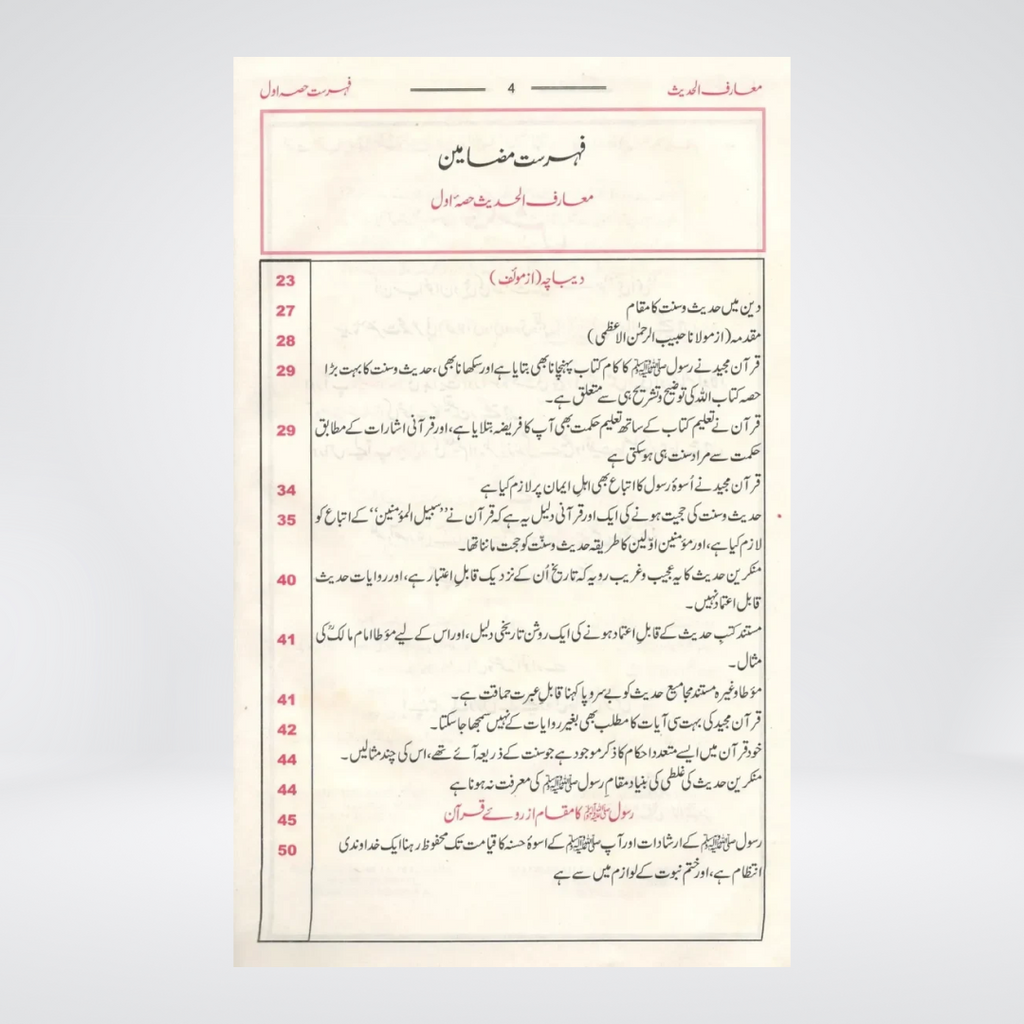 معارف الحدیث
4
فہرست حصہ اول
فہرست مضامین
معارف الحدیث حصۂ اول
دیباچہ (از مؤلف) 23
دین میں حدیث وسنت کا مقام 27
مقدمہ (از مولانا حبیب الرحمٰن الاعظمی) 28
قرآن مجید نے رسول ﷺ کا کام کتاب پہنچانا بھی بتایا ہے اور سکھانا بھی، حدیث وسنت کا بہت بڑا 29
حصہ کتاب اللہ کی توضیح وتشریح ہی سے متعلق ہے۔
قرآن نے تعلیم کتاب کے ساتھ تعلیم حکمت بھی آپ کا فریضہ بتلایا ہے، اور قرآنی اشارات کے مطابق 29
حکمت سے مراد سنت ہی ہوسکتی ہے
قرآن مجید نے اُسوۂ رسول کا اتباع بھی اہلِ ایمان پر لازم کیا ہے 34
حدیث وسنت کی حجیت ہونے کی ایک اور قرآنی دلیل یہ ہے کہ قرآن نے ”سبیل المؤمنین“ کے اتباع کو 35
لازم کیا ہے، اور مؤمنین اوّلین کا طریقہ حدیث وسنّت کو حجت ماننا تھا۔
منکرین حدیث کا یہ عجیب وغریب رویہ کہ تاریخ اُن کے نزدیک قابلِ اعتبار ہے، اور روایات حدیث 40
قابل اعتماد نہیں۔
مستند کتبِ حدیث کے قابلِ اعتماد ہونے کی ایک روشن تاریخی دلیل، اور اس کے لیے مؤطا امام مالکؒ کی 41
مثال۔
مؤطا وغیرہ مستند مجامیع حدیث کو بے سروپا کہنا قابلِ عبرت حماقت ہے۔ 41
قرآن مجید کی بہت سی آیات کا مطلب بھی بغیر روایات کے نہیں سمجھا جاسکتا۔ 42
خود قرآن میں ایسے متعدد احکام کا ذکر موجود ہے جو سنت کے ذریعہ آئے تھے، اس کی چند مثالیں۔ 44
منکرین حدیث کی غلطی کی بنیاد مقامِ رسول ﷺ کی معرفت نہ ہونا ہے 44
رسول ﷺ کا مقام از روئے قرآن 45
رسول ﷺ کے ارشادات اور آپ ﷺ کے اسوۂ حسنہ کا قیامت تک محفوظ رہنا ایک خداوندی 50
انتظام ہے، اور ختم نبوت کے لوازم میں سے ہے